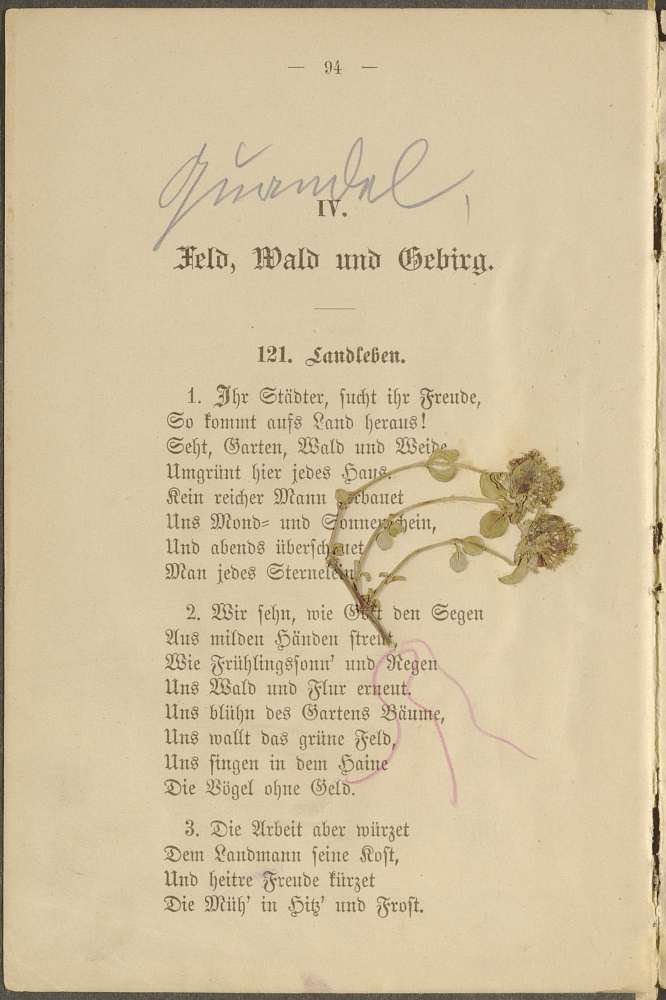 — 94 —
Quandel,
IV.
Feld, Wald und Gebirg.
121. Landleben.
1. Ihr Städter, sucht ihr Freude,
So kommt aufs Land heraus!
Seht, Garten, Wald und Weide
Umgrünt hier jedes Haus.
Kein reicher Mann verbauet
Uns Mond- und Sonnenschein,
Und abends überschauet
Man jedes Sternelein.
2. Wir sehn, wie Gott den Segen
Aus milden Händen streut,
Wie Frühlingssonn' und Regen
Uns Wald und Flur erneut.
Uns blühn des Gartens Bäume,
Uns wallt das grüne Feld,
Uns singen in dem Haine
Die Vögel ohne Geld.
3. Die Arbeit aber würzet
Dem Landmann seine Kost,
Und heitre Freude kürzet
Die Müh' in Hitz' und Frost.